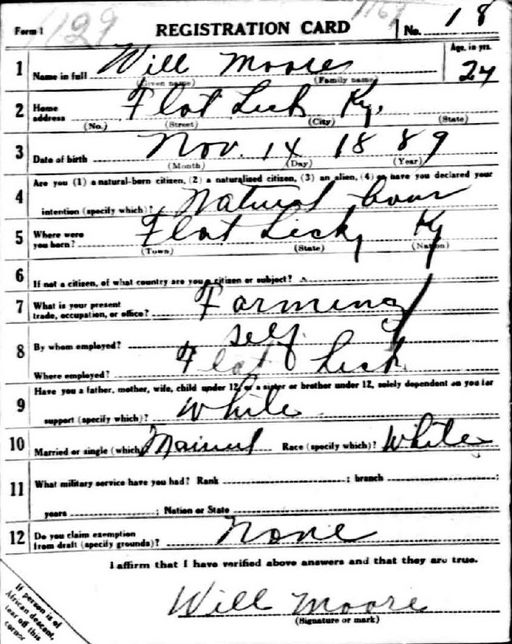 Form 1 REGISTRATION CARD No. 18
1 Name in full Will Moore Age, in yrs. 24
(Given name) (Family name)
2 Home address Flat Lick Ky.
(No.) (Street) (City) (State)
3 Date of birth Nov. 14 1889
(Month) (Day) (Year)
4 Are you (1) a natural-born citizen, (2) a naturalized citizen, (3) an alien, (4) or have you declared your
intention (specify which)? Natural born
5 Where were you born? Flat Lick, Ky
(Town) (State) (Nation)
6 If not a citizen, of what country are you a citizen or subject?
7 What is your present trade, occupation, or office? Farming
8 By whom employed? self
Where employed? Flat Lick
9 Have you a father, mother, wife, child under 12, or a sister or brother under 12, solely dependent on you for
support (specify which)? White
10 Married or single (which) Race (specify which)? White
11 What military service have you had? Rank ; branch ;
years ; Nation or State
12 Do you claim exemption from draft (specify grounds)? None
I affirm that I have verified above answers and that they are true.
Will Moore
(Signature or mark)
If person is of
African descent,
tear off this
corner